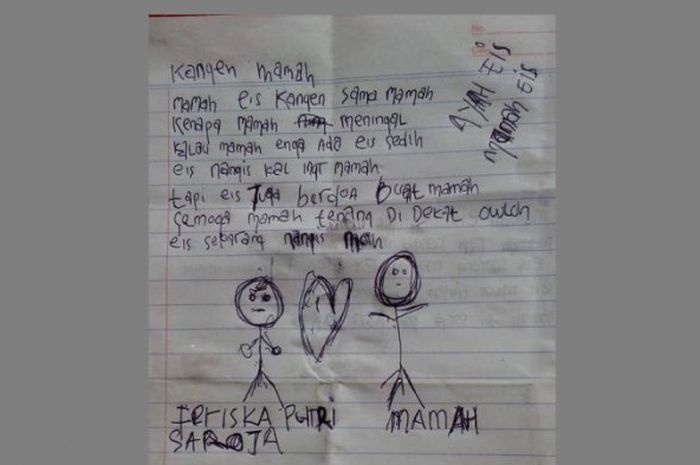 Kangen mamah
mamah eis Kangen sama mamah
Kenapa mamah meningal
Kalau mamah enga Ada eis sedih
eis nangis kal ingt mamah
tapi eis Juga berdoA Buat mamah
semoga mamah tenang Di Dekat owloh
eis sekarang nangis mah
AYAH EIS
mamah Eis
PUTRI
MAMAH